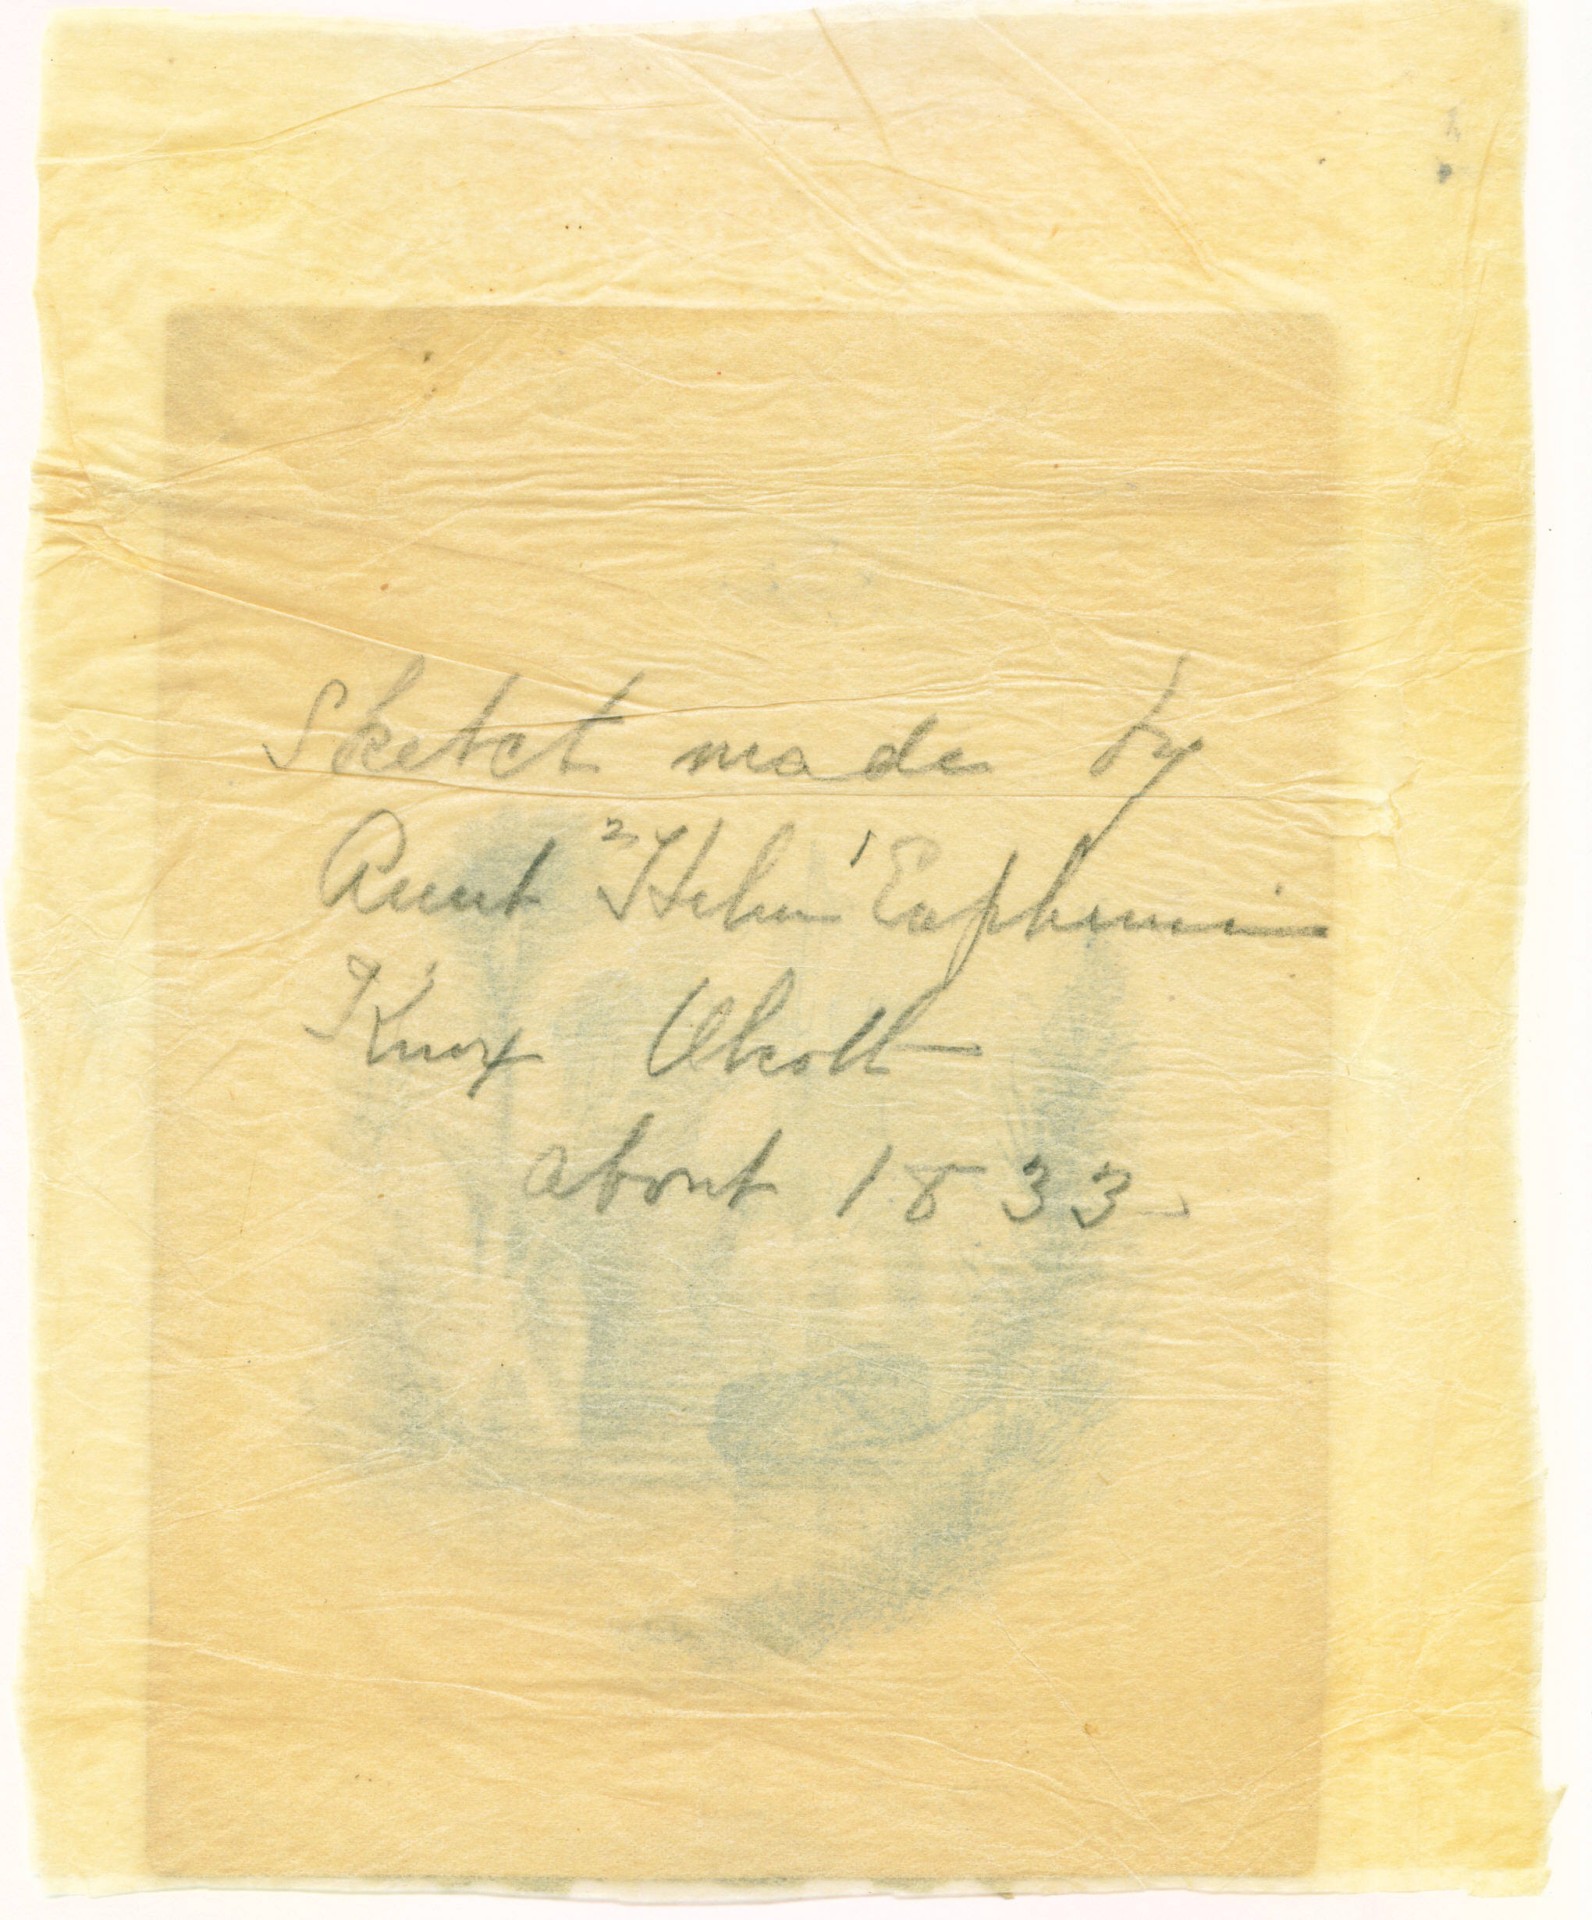 Sketch made by
Aunt 2 Helen 1 Euphemia
Knox Olcott
about 1833